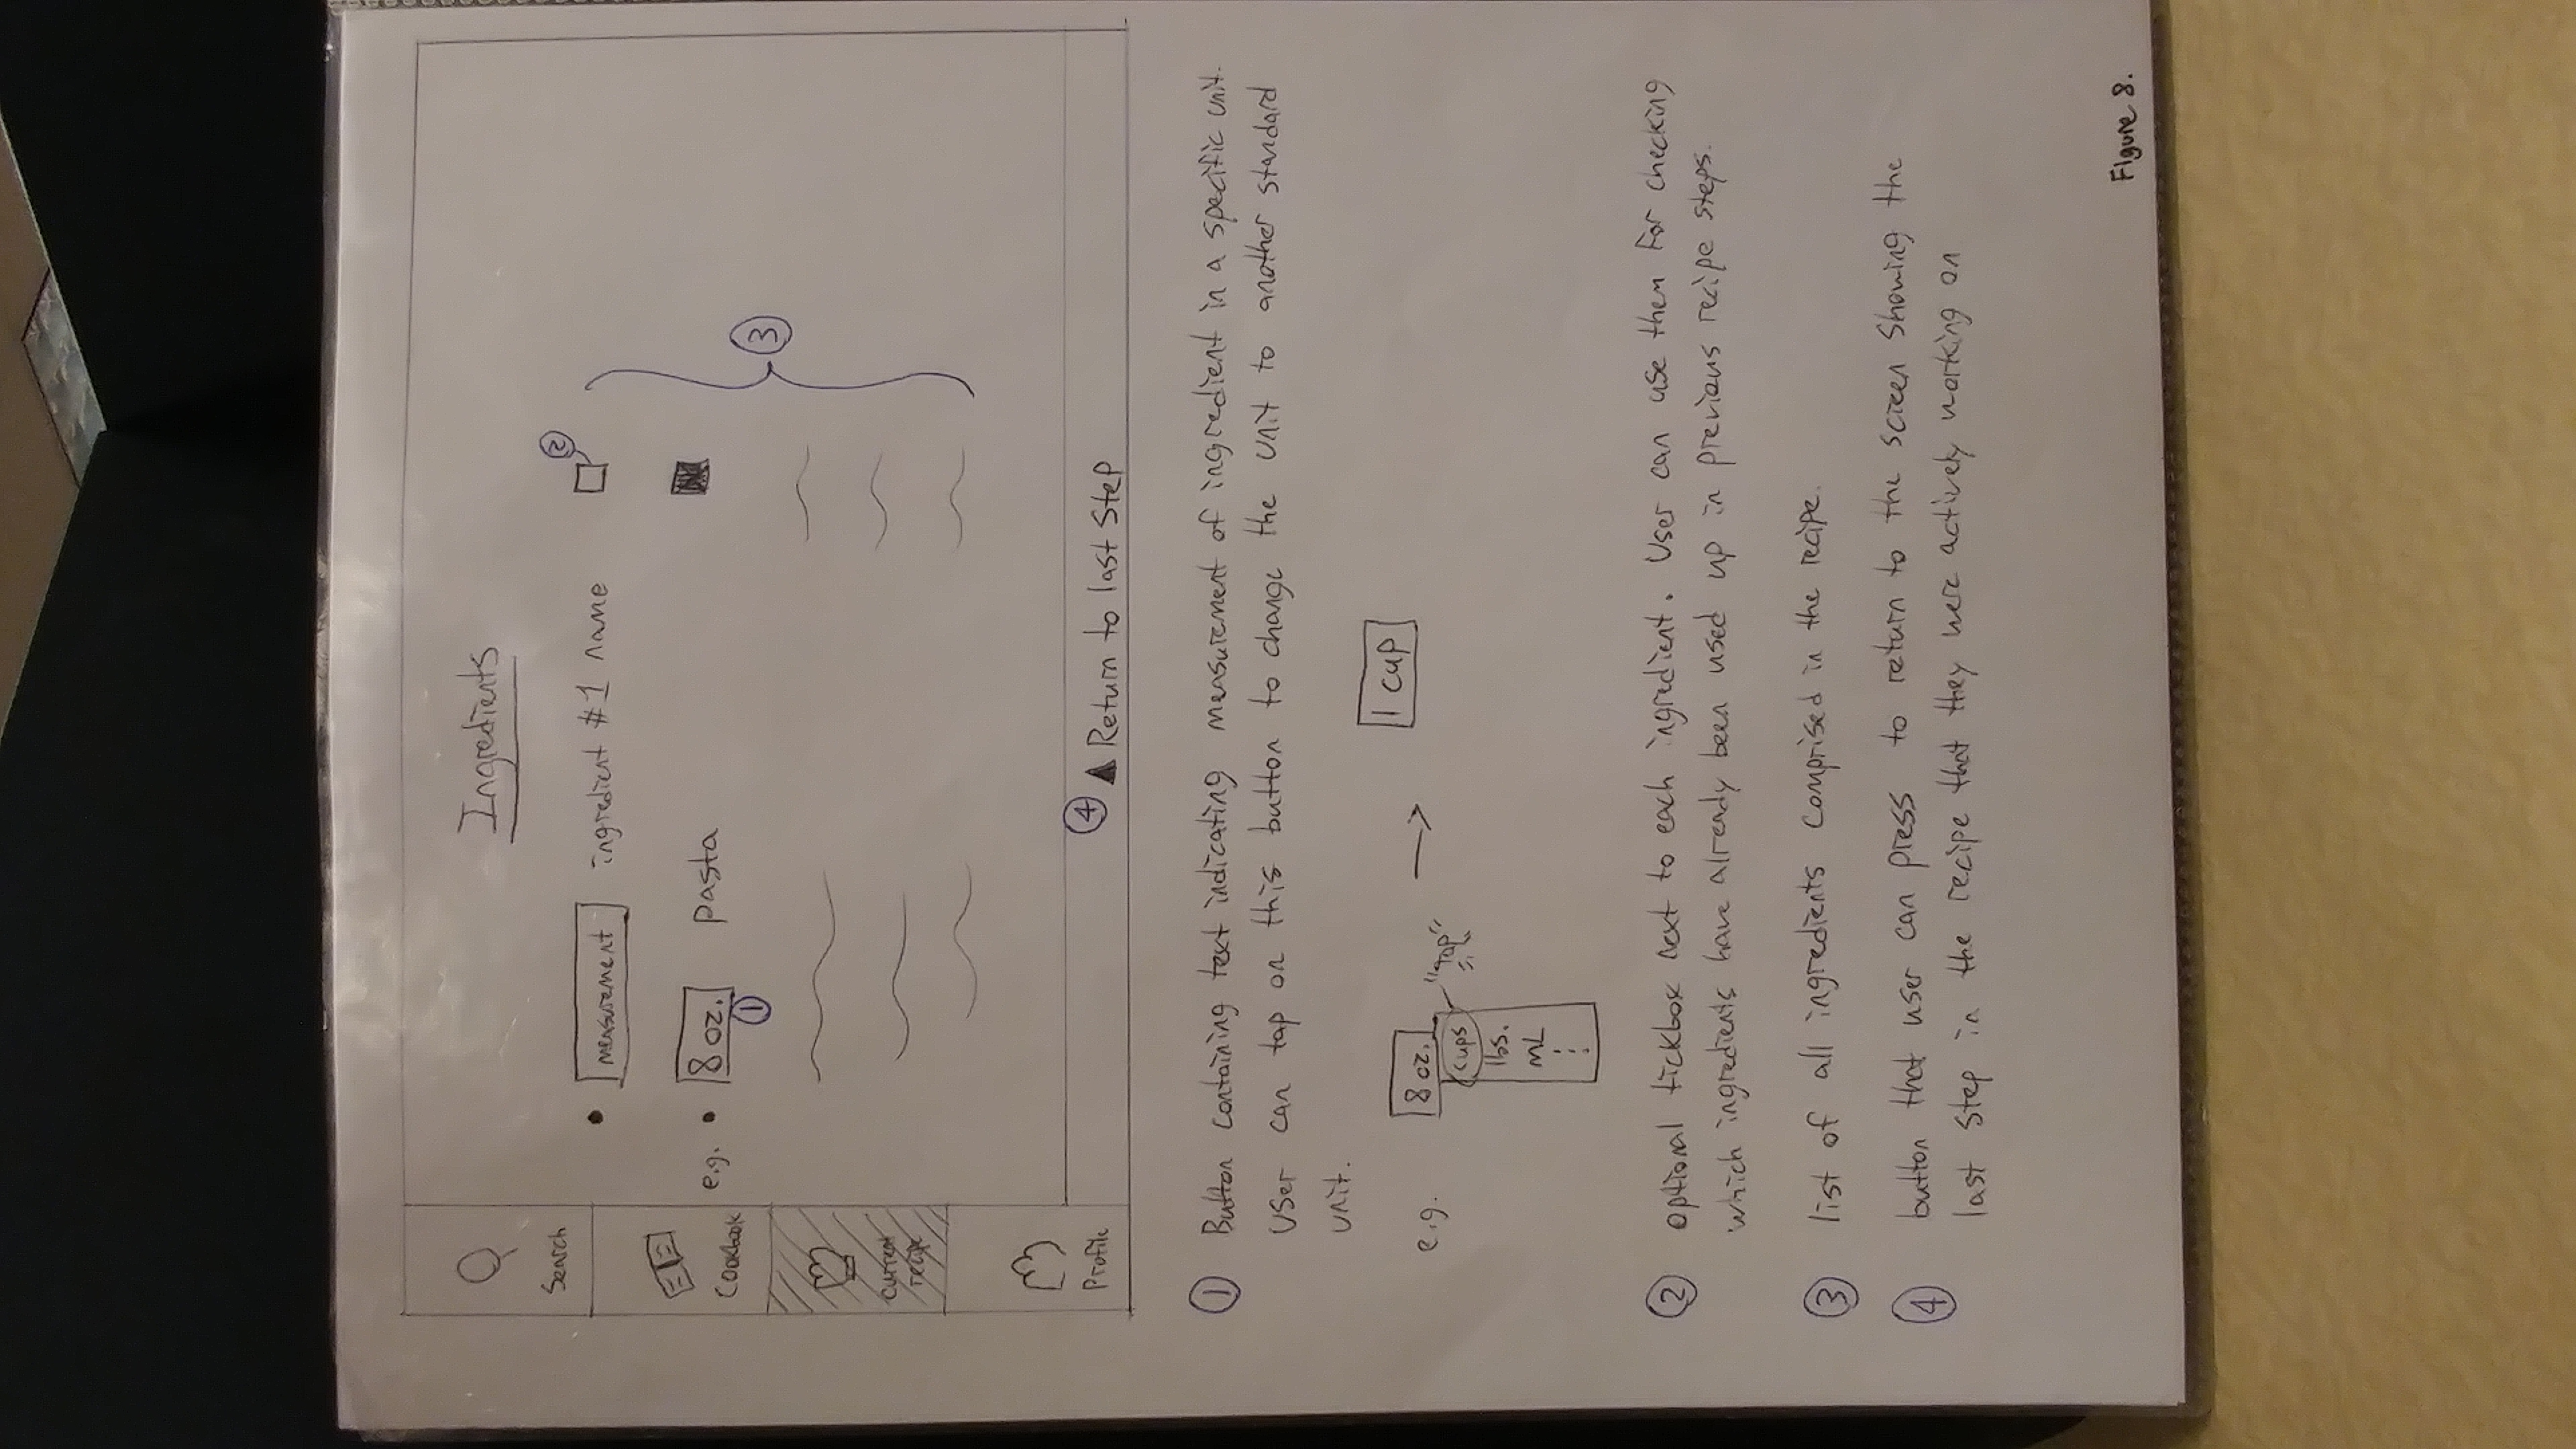 Ingredients
Search
② 
• measurement ingredient #1 name
Cookbook
e.g. • 8 oz. pasta
①
③
current
recipe
Profile
④ ▲ Return to last step
① Button containing text indicating measurement of ingredient in a specific unit.
User can tap on this button to change the unit to another standard
unit.
e.g. 8 oz. → 1 cup
cups "tap"
lbs.
mL
② optional tickbox next to each ingredient. User can use them for checking
which ingredients have already been used up in previous recipe steps.
③ list of all ingredients comprised in the recipe.
④ button that user can press to return to the screen showing the
last step in the recipe that they were actively working on
Figure 8.